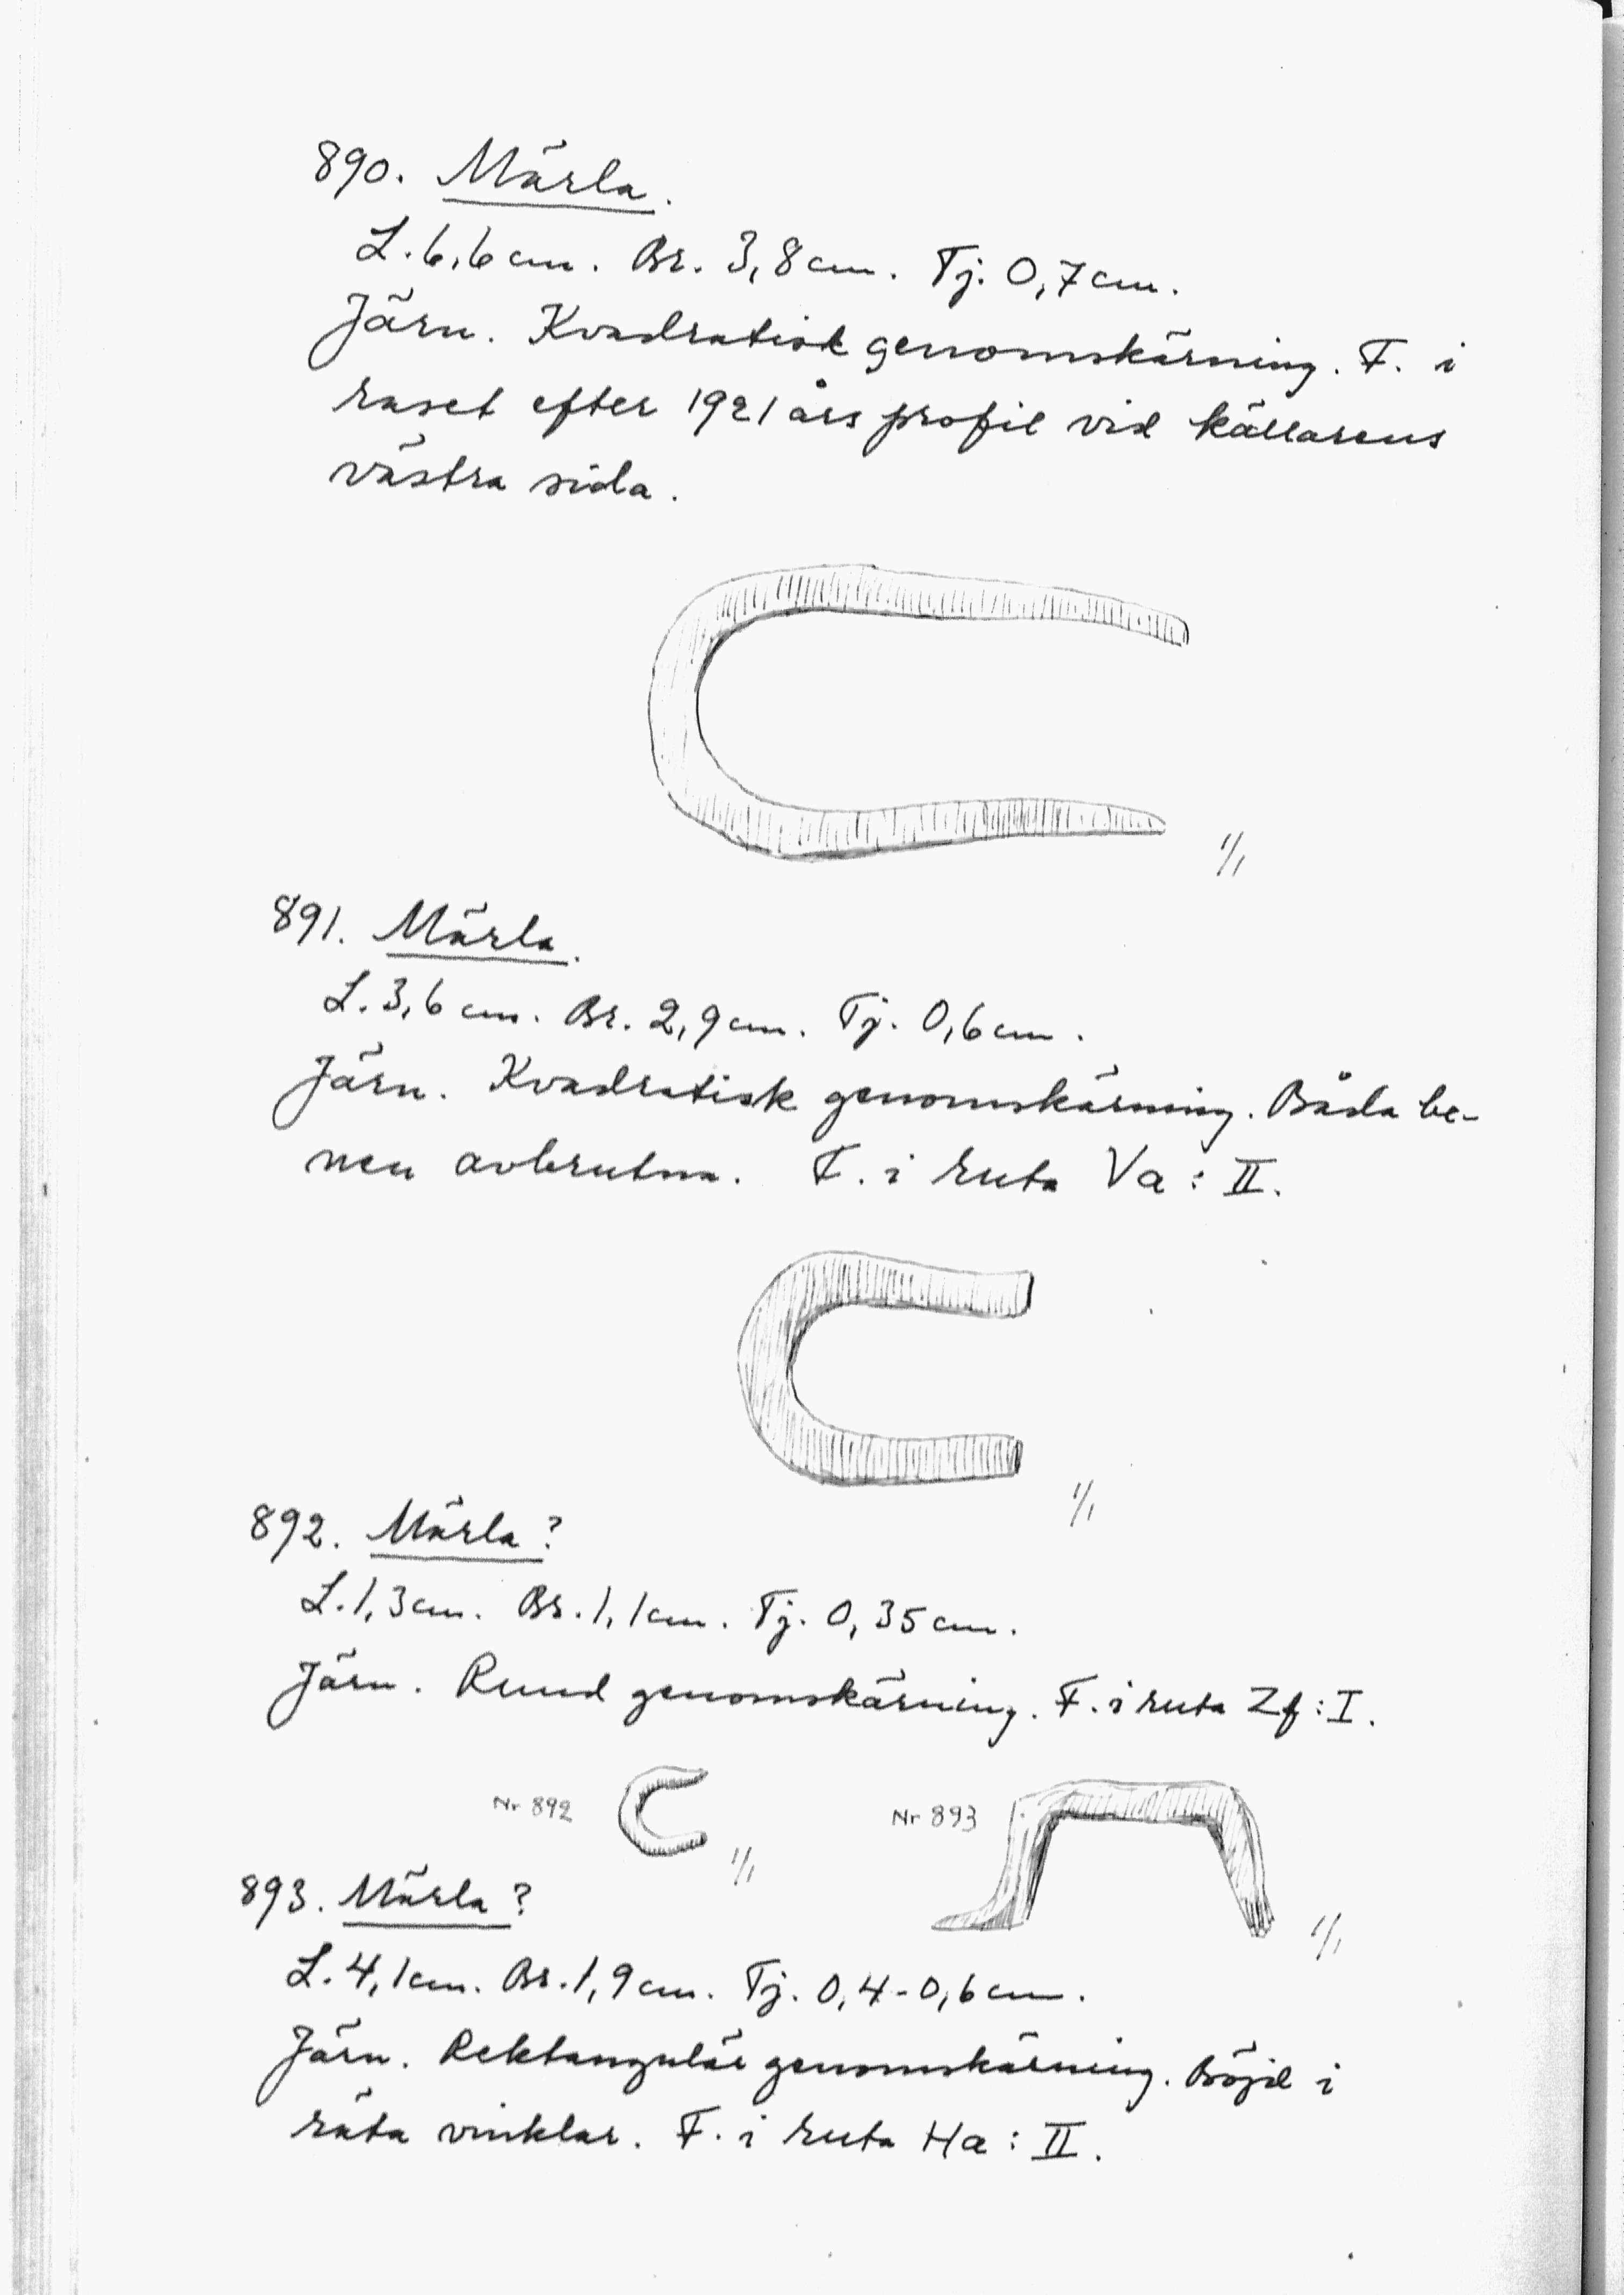 890. Märla.
L. 6,6 cm. Br. 3,8 cm. Tj. 0,7 cm.
Järn. Kvadratisk genomskärning. F. i
raset efter 1921 års profil vid källarens
västra sida.
1/1
891. Märla.
L. 3,6 cm. Br. 2,9 cm. Tj. 0,6 cm.
Järn. Kvadratisk genomskärning. Båda be-
nen avbrutna. F. i ruta Va : II.
1/1
892. Märla?
L. 1,3 cm. Br. 1,1 cm. Tj. 0,35 cm.
Järn. Rund genomskärning. F. i ruta Zf : I.
Nr 892
1/1
Nr 893
1/1
893. Märla?
L. 4,1 cm. Br. 1,9 cm. Tj. 0,4-0,6 cm.
Järn. Rektangulär genomskärning. Böjd i
räta vinklar. F. i ruta Ha : II.